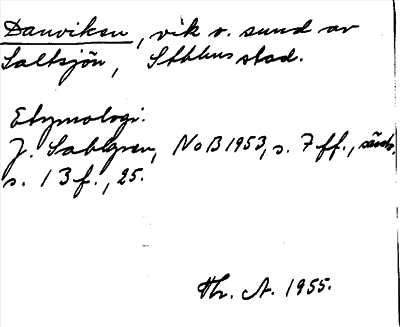 Danviken, vik o. sund av
Saltsjön, Sthlms stad.
Etymologi:
J. Sahlgren, NoB 1953, s. 7 ff., särsk.
s. 13 f., 25.
Hr. A. 1955.